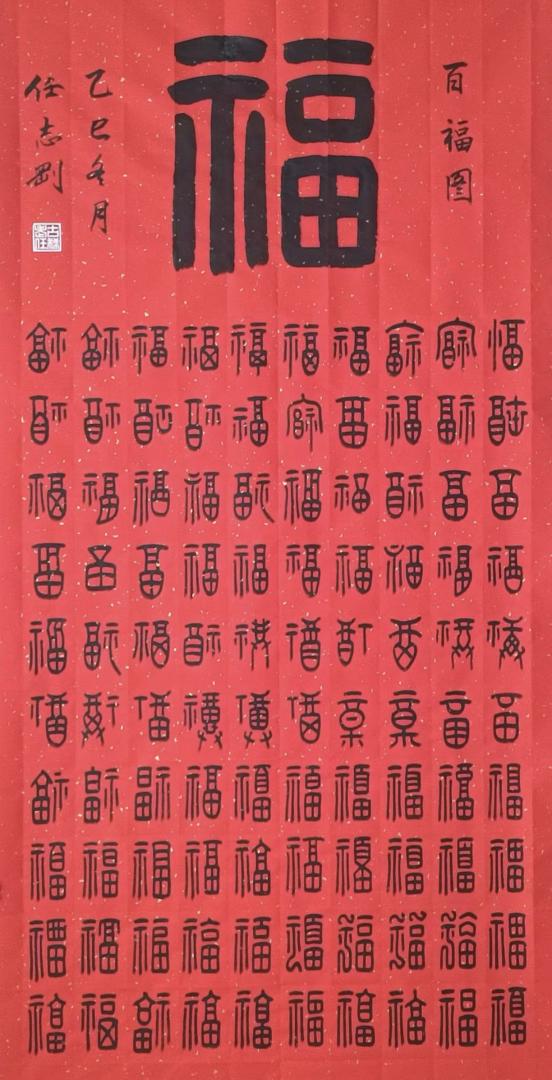 百福图
福
福福福福福福福福福福
福福福福福福福福福福
福福福福福福福福福福
福福福福福福福福福福
福福福福福福福福福福
福福福福福福福福福福
福福福福福福福福福福
福福福福福福福福福福
福福福福福福福福福福
福福福福福福福福福福
乙巳冬月
任志刚